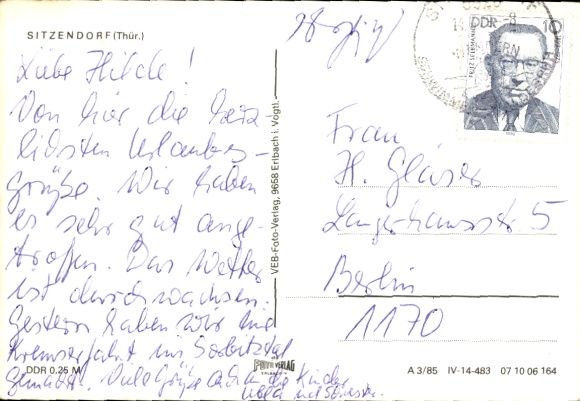 SITZENDORF (Thür.)
Liebe Hilde!
Von hier die herz-
lichsten Urlaubs-
grüße. Wir haben
es sehr gut ange-
troffen. Das Wetter
ist durchwachsen.
Gestern haben wir eine
Kremserfahrt ins Sorbitztal
gemacht. Viele Grüße an die Kinder
VEB-Foto-Verlag, 9658 Erlbach i. Vogtl.
DDR 0,25 M
FOTO VERLAG
DDR
10
FRITZ SELBMANN
Frau
H. Gläser
Langerhansstr. 5
Berlin
1170
A 3/85 IV-14-483 07 10 06 164